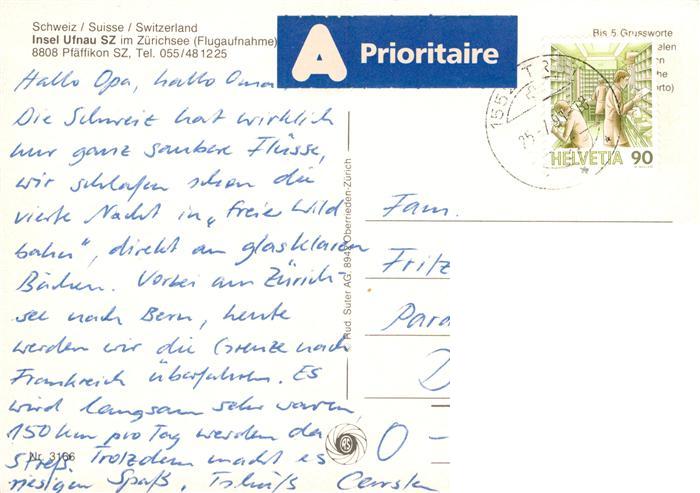 Schweiz / Suisse / Switzerland
Insel Ufnau SZ im Zürichsee (Flugaufnahme)
8808 Pfäffikon SZ, Tel. 055/48 12 25
A Prioritaire
Bis 5 Grussworte
HELVETIA 90
Hallo Opa, hallo Oma
Die Schweiz hat wirklich
nur ganz saubere Flüsse,
wir schlafen schon die
vierte Nacht in „freier Wild
bahn“, direkt an glasklaren
Bächen. Vorbei am Zürich-
see nach Bern, heute
werden wir die Grenze nach
Frankreich überfahren. Es
wird langsam sehr warm,
150 km pro Tag werden da
Streß. Trotzdem macht es
riesigen Spaß, Tschüß Carsten
Nr. 3166
© Rud. Suter AG, 8942 Oberrieden-Zürich
Fam.
Fritz
Para
D
O –